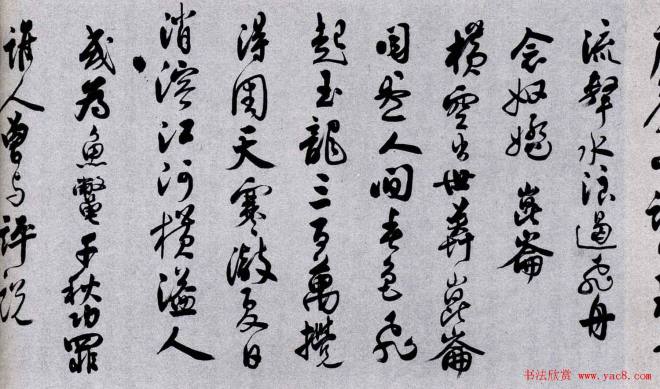 流擊水浪遏飛舟
念奴嬌 崑崙
橫空出世莽崑崙
閱盡人間春色飛
起玉龍三百萬攪
得周天寒澈夏日
消溶江河橫溢人
或為魚鱉千秋功罪
誰人曾與評說
书法欣赏 www.yac8.com